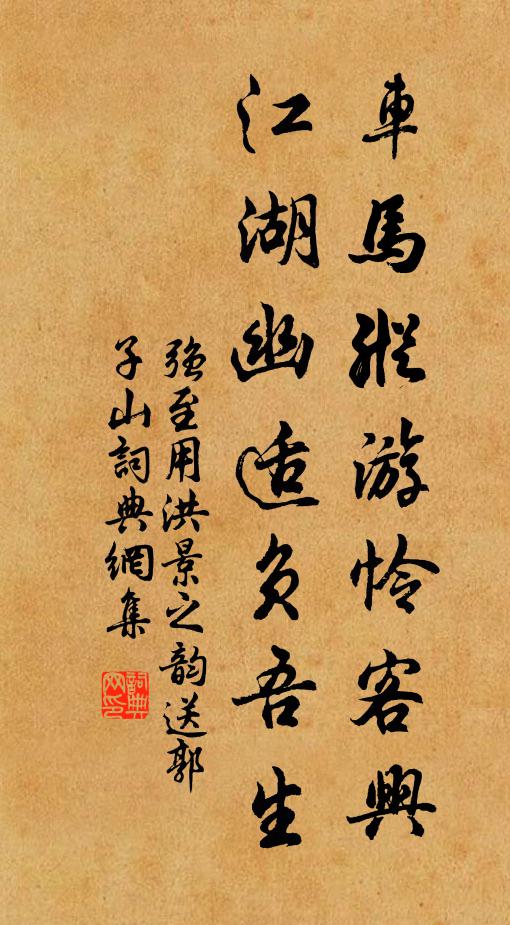 車馬縱游怜客興
江湖幽适負吾生
強至用洪景之韵送郭
子山詞典網集
詞典
网印